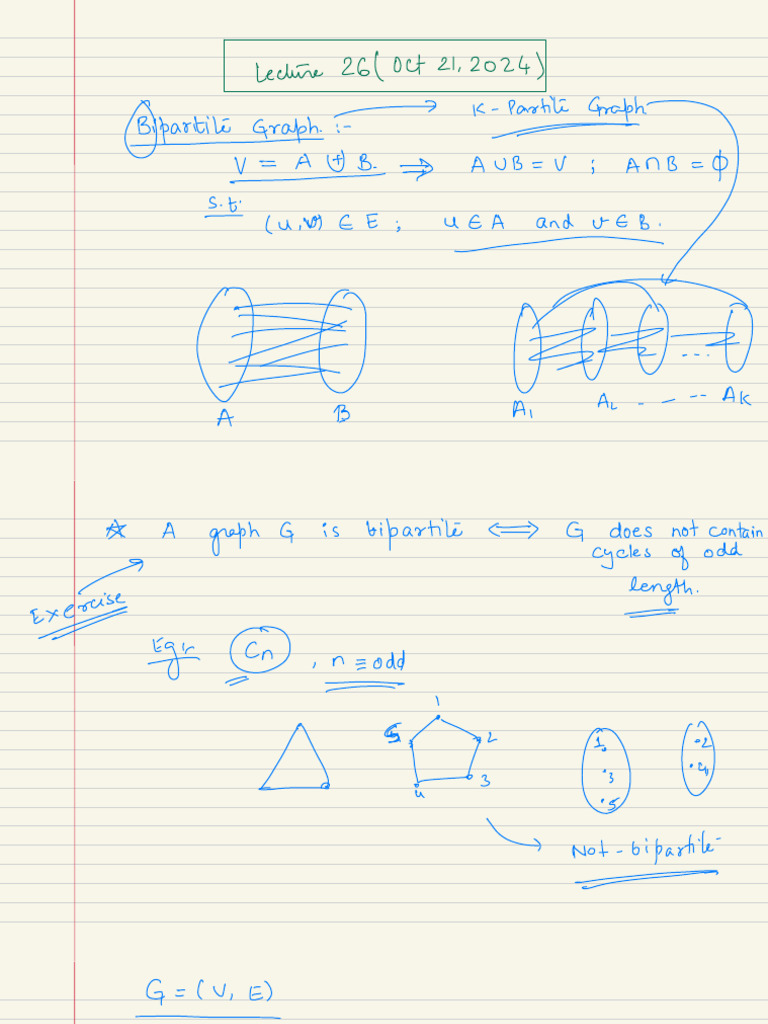 Lecture 26 (Oct 21, 2024)
Bipartite Graph :- K-Partite Graph
V = A ⊎ B. ⇒ A ∪ B = V ; A ∩ B = ϕ
s.t.
(u,v) ∈ E ; u ∈ A and v ∈ B.
A B A₁ A₂ - - -- AK
☆ A graph G is bipartite ⟺ G does not contain
cycles of odd
length.
Exercise
Eg:- Cn , n ≡ odd
1
5 2
4 3
1 2
3 4
5
Not-bipartite
G = (V, E)